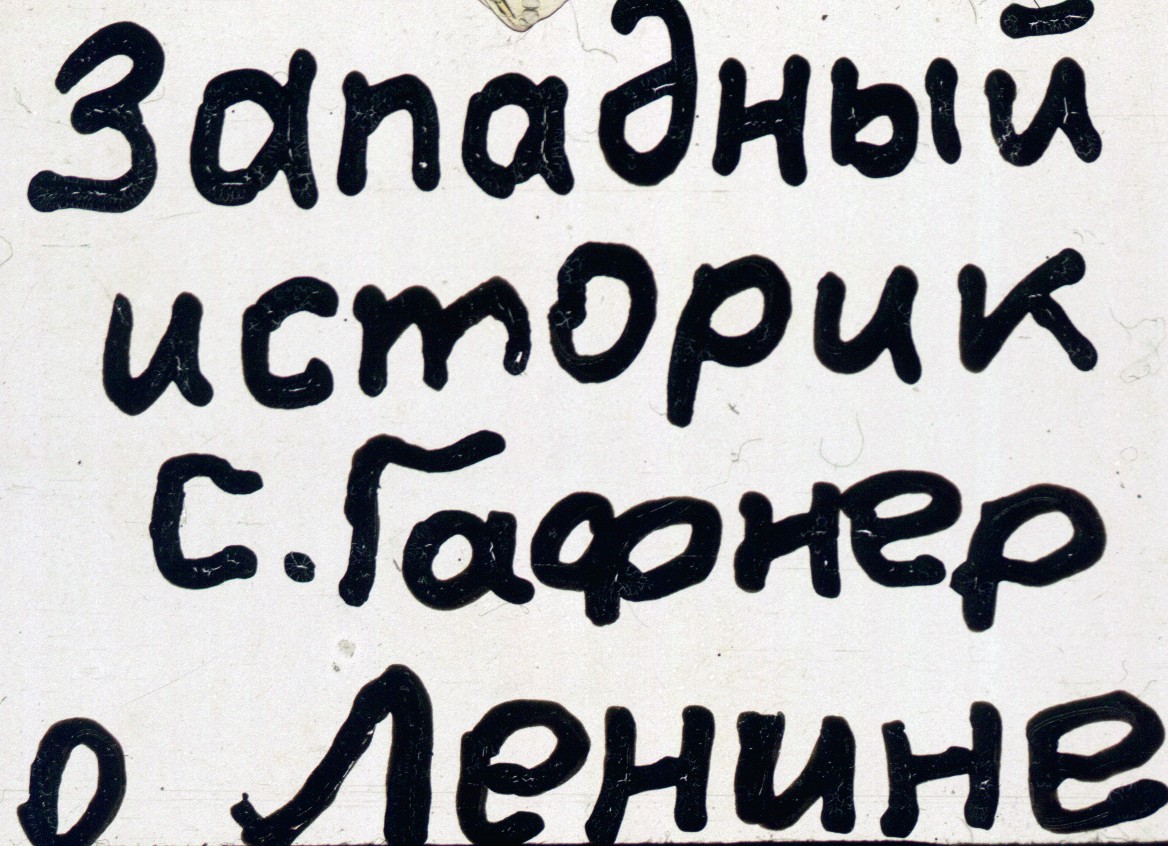 Западный
историк
С. Гафнер
о Ленине